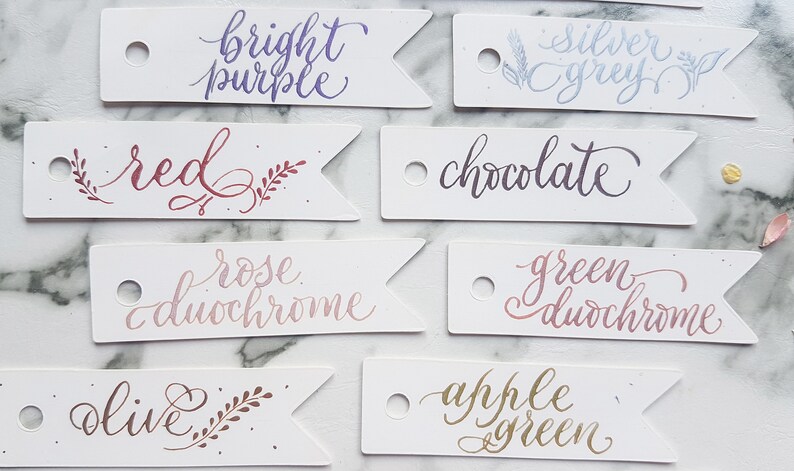 bright
purple
silver
grey
red
chocolate
rose
duochrome
green
duochrome
olive
apple
green